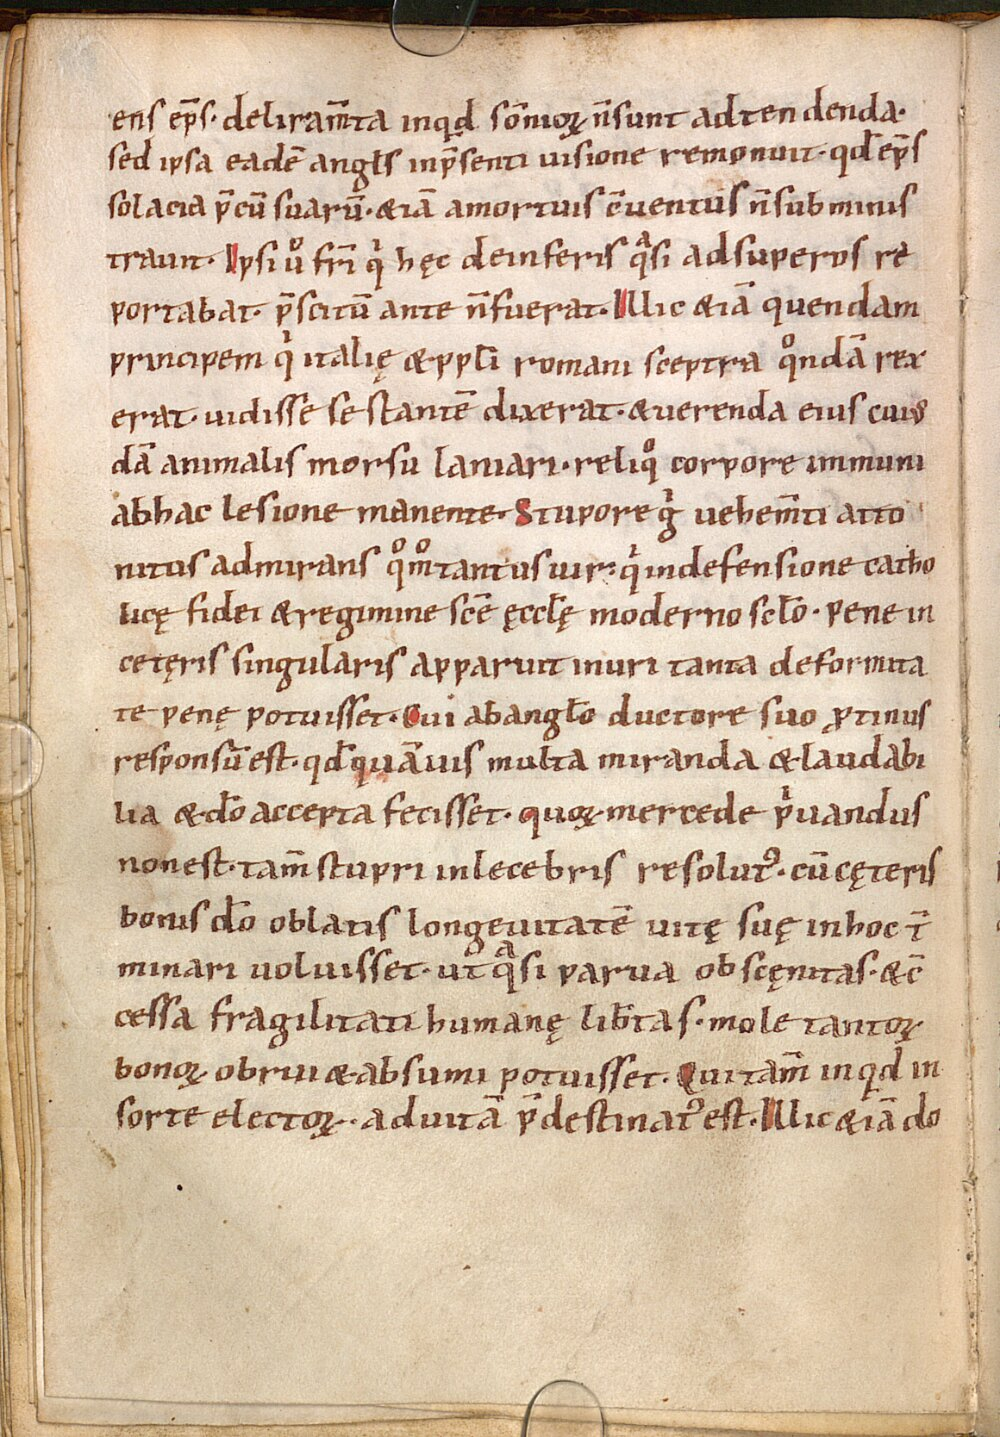 ens ep̄s· deliram̄ta inqđ som̄ioꝝ n̄sunt adtendenda·
sed ipsa eadē angłs inp̄senti uisione remonuit· qđ ep̄s
solacia p̄cū suarū· &iā amortuis c̄uentus n̄subminis
trauit· Ipsi uͦ fr̄i qͥ hęc deinferis qͣsi adsuperos re
portabat· p̄scitū ante n̄fuerat· Illic &iā quendam
principem qͥ italię &ppłi romani sceptra qͦndā rex
erat· uidisse se stantē dixerat· &uerenda eius cuius
dā animalis morsu laniari· reliqͦ corpore immuni
abhac lesione manente· Stupore gͥ uehem̄ti atto
nitus admirans qͦmͦ tantus uir· qͥ indefensione catho
licę fidei &regimine scē ęccłę moderno scło· pene in
cetęris singularis apparuit inuri tanta deformita
te penę potuisset· Cui abangło ductore suo ꝓtinus
responsū est· qđ quāuis multa miranda &laudabi
lia &dō accepta fecisset· quoꝝ mercede pͥuandus
non est· tam̄ stupri inlecebris resolutꝰ· cū cęteris
bonis dō oblatis longeuitatē uitę suę inhoc t̄
minari uoluisset· ut qͣsi parua obscęnitas· &c̄
cessa fragilitati humanę lib̄tas· mole tantoꝝ
bonoꝝ obrui &absumi potuisset· Qui tam̄ inqđ in
sorte electoꝝ· aduitā p̄destinatꝰ est· Illic &iā do